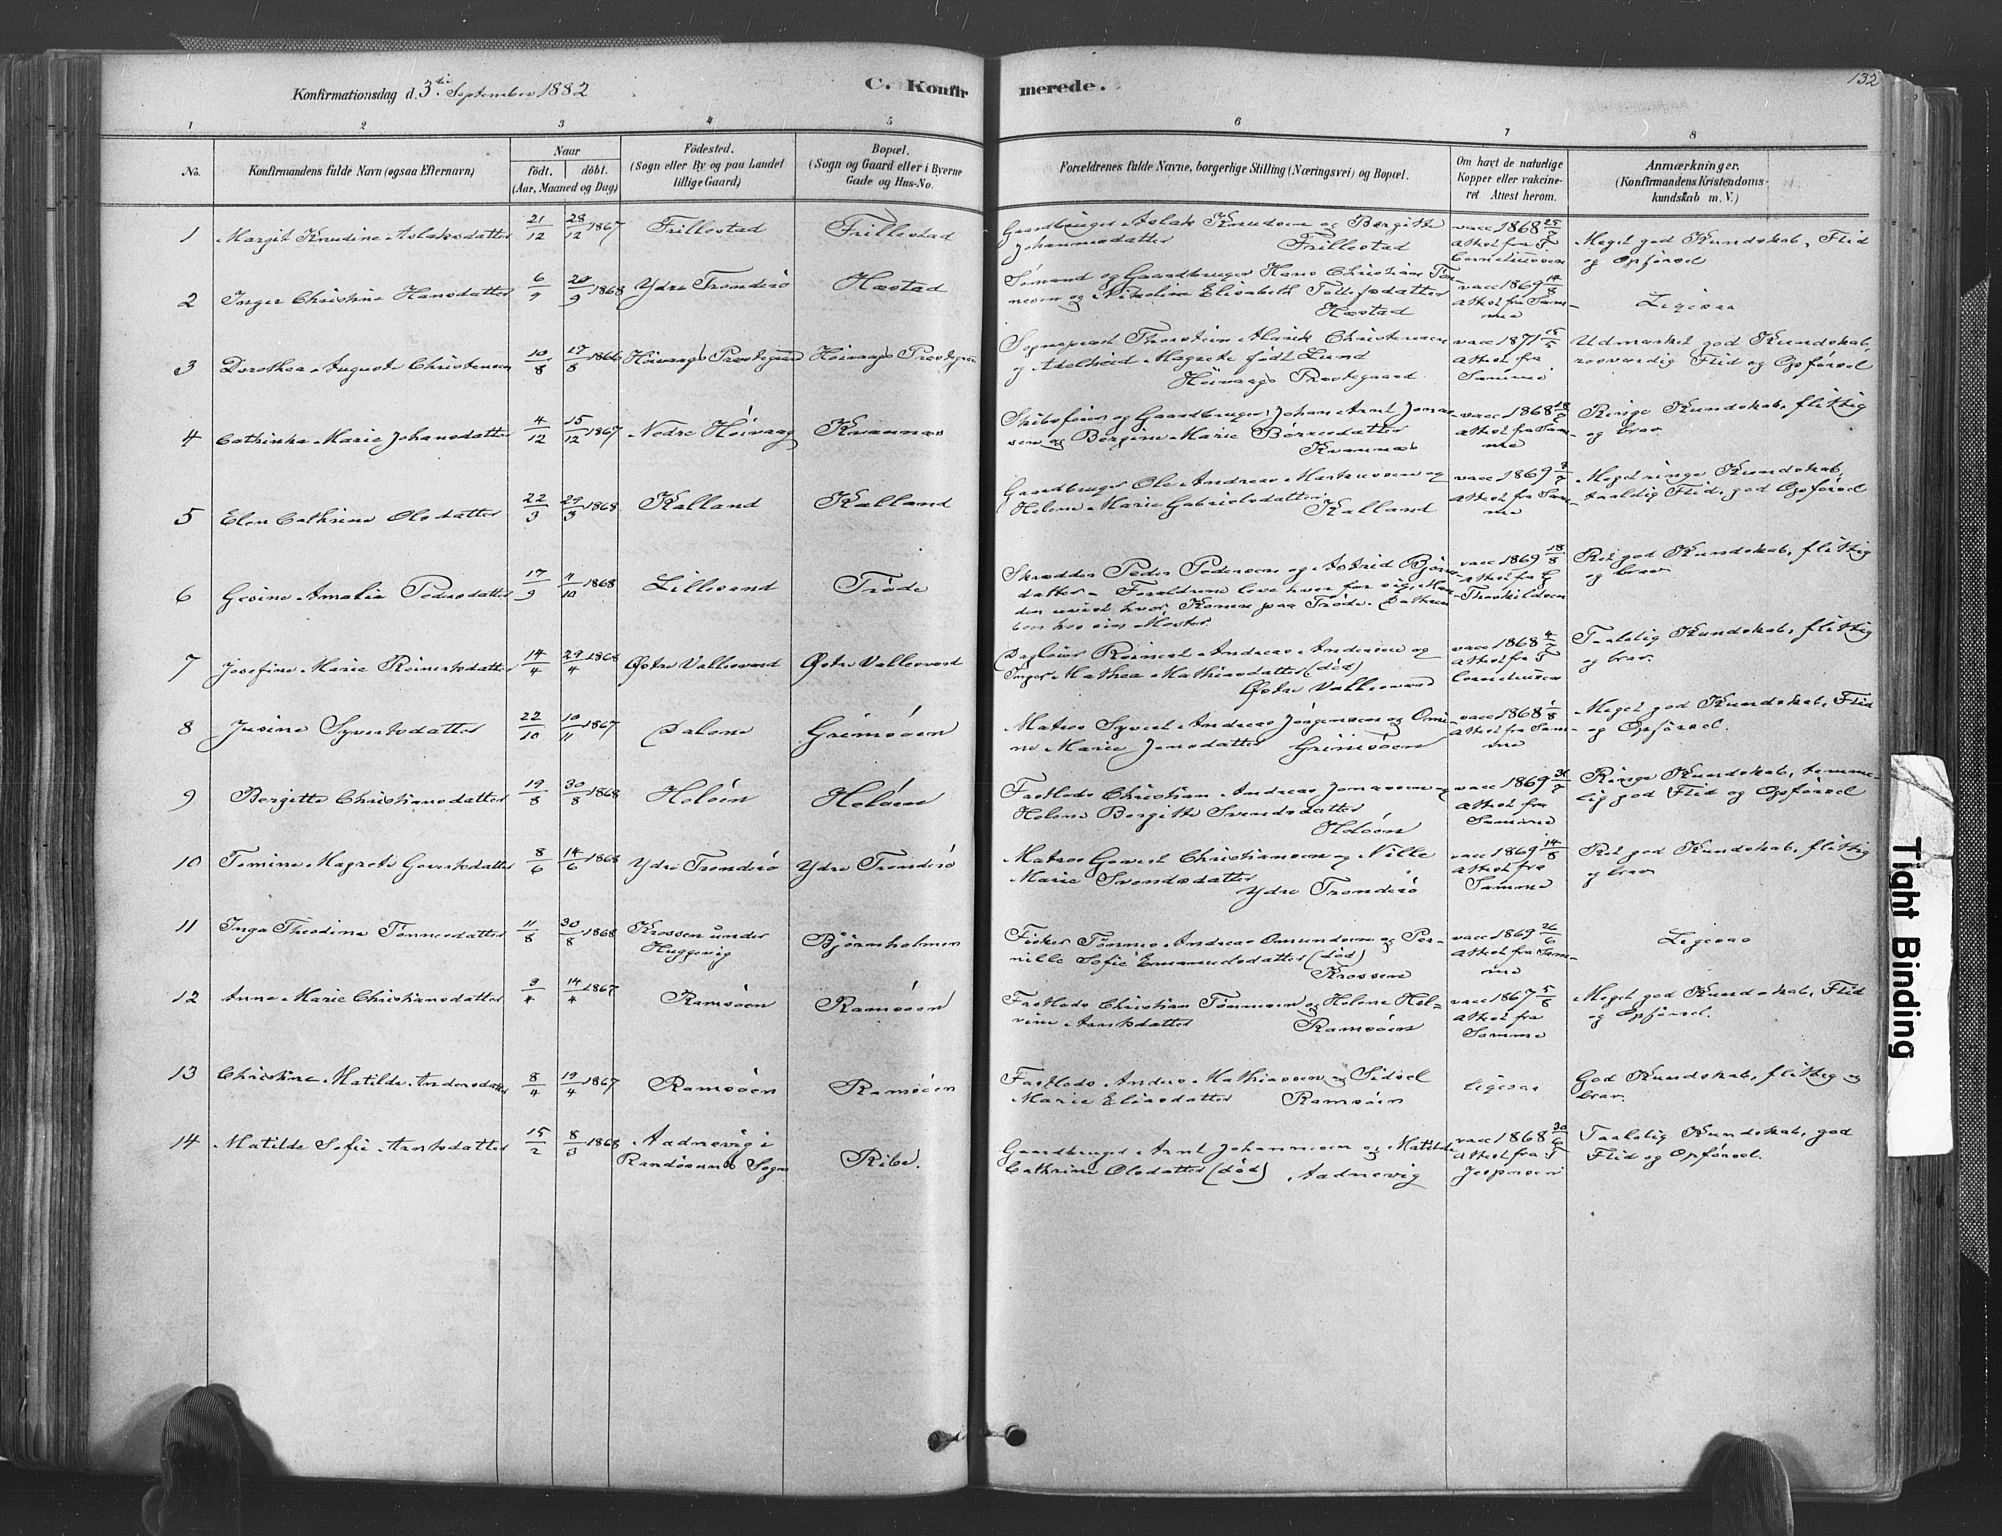 132
Konfirmationsdag d. 3die September 1882
C. Konfirmerede.
1 2 3 4 5 6 7 8
No. Konfirmandens fulde Navn (ogsaa Efternavn) Naar født, døbt. (Aar, Maaned og Dag) Fødested. (Sogn eller By og paa Landet tillige Gaard) Bopæl. (Sogn og Gaard eller i Byerne Gade og Hus-No. Forældrenes fulde Navne, borgerlige Stilling (Næringsvei) og Bopæl. Om havt de naturlige Kopper eller vakcineret. Attest herom. Anmærkninger. (Konfirmandens Kristendomskundskab m. V.)
1 Margit Knudine Aslaksdatter 21/12 28/12 1867 Frillestad Frillestad Gaardbruger Aslak Knudsen og Bergitte
Johannesdatter Frillestad vacc 1868 25/7 Attest fra T. Corneliussen Meget god Kundskab, Flid
og Opførsel
2 Inger Christine Hansdatter 6/9 20/9 1868 Ydre Tronderö Hæstad Sømand og Gaardbruger Hans Christian Tønnesen og Nikoline Elisabeth Tollefsdatter
Hæstad vacc 1869 14/8 Attest fra Samme Ligesaa
3 Dorothea Auguste Christensen 10/8 17/8 1866 Høivaags Prestegaard Høivaags Prestegaard Sognepræst Thorstein Alarik Christensen
og Adelheid Magrete født Lund
Høivaags Prestegaard vacc 1871 15/5 Attest fra Samme Udmærket god Kundskab,
rosværdig Flid og Opførsel
4 Cathinka Marie Johansdatter 4/12 15/12 1867 Nedre Høivaag Kvannæs Skibsfører og Gaardbruger Johan Arnt Jonassen og Bergine Marie Børresdatter
Kvannæs vacc 1868 Attest fra Samme Ringe Kundskab, flittig
og brav
5 Elen Cathrine Olsdatter 22/3 29/3 1868 Kalland Kalland Gaardbruger Ole Andreas Martinssen og
Helene Marie Gabrielsdatter Kalland vacc 1869 Attest fra Samme Meget ringe Kundskab,
taalelig Flid, god Opførsel
6 Gesine Amalia Pedersdatter 17/9 11/10 1868 Lillesand Trøde Skrædder Peder Pedersen og Astrid Bjørnsdatter. Forældrene leve hver for sig, Manden uvist hvor, Konen paa Trøde. Datteren
hos sin Moster. vacc 1869 18/8 Attest fra G Thorkildsen Ret god Kundskab, flittig
og brav
7 Josefine Marie Reinertsdatter 14/4 29/4 1868 Østre Vallesverd Østre Vallesverd Dagleier Reinert Andreas Andersen og
Inger Mathea Mathiasdatter (død)
Østre Vallesverd vacc 1868 Attest fra T Cornelius­sen Taalelig Kundskab, flittig
og brav
8 Jusine Syvertsdatter 22/10 10/11 1867 Dalene Grimsøen Matros Syvert Andreas Jørgensen og Omine Marie Jensdatter Grimsøen vacc 1868 Attest fra Samme Meget god Kundskab, Flid
og Opførsel.
9 Bergitte Christiansdatter 19/8 30/8 1868 Heløen Heløen Fastlods Christian Andreas Jonassen og
Helene Bergitte Svendsdatter
vacc 1869 31/7 Attest fra Samme Ringe Kundskab, temmelig god Flid og Opførsel
10 Tomine Magrete Govertsdatter 8/6 14/6 1868 Ydre Tronderö Ydre Tronderö Matros Govert Christiansen og Nille
Marie Svendsdatter
Ydre Tronderö vacc 1869 14/8 Attest fra Samme Ret god Kundskab, flittig
og brav.
11 Inga Theodine Tønnesdatter 11/8 30/8 1868 Krossen under Huggevig Bjørnholmen Fisker Tønnes Andreas Omundsen og Pernille Sofie Emanuelsdatter (død)
Krossen vacc 1869 26/6 Attest fra Samme Ligesaa
12 Anne Marie Christiansdatter 3/4 14/4 1867 Ramsøen Ramsøen Fastlods Christian Tønnesen og Helene Helvine Arntsdatter Ramsøen vacc 1867 5/8 Attest fra Samme Meget god Kundskab, Flid
og Opførsel.
13 Christine Matilde Andersdatter 8/4 19/4 1867 Ramsøen Ramsøen Fastlods Anders Mathiassen og Sidsel
Marie Eliasdatter Ramsøen ligesaa God Kundskab, flittig og
brav.
14 Matilde Sofie Arntsdatter 15/2 8/3 1868 Aadnevig i Randøsunds Sogn Ribe. Gaardbruger Arnt Johannesen og Matilde
Cathrine Olsdatter (død) Aadnevig vacc 1868 30/6 Attest fra T Jespersen Taalelig Kundskab, god
Flid og Opførsel.
Tight Binding